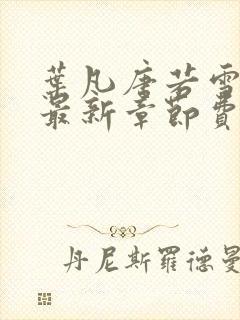 葉凡唐若雪
最新章節費
丹尼斯羅德曼